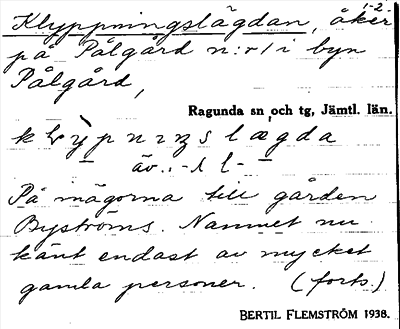 1-2.
Klyppningslägdan, åker
på Pålgård n:r 1 i byn
Pålgård,
Ragunda sn och tg, Jämtl. län.
äv.:
På mägorna till gården
Byströms. Namnet nu
känt endast av mycket
gamla personer. (forts.)
BERTIL FLEMSTRÖM 1938.